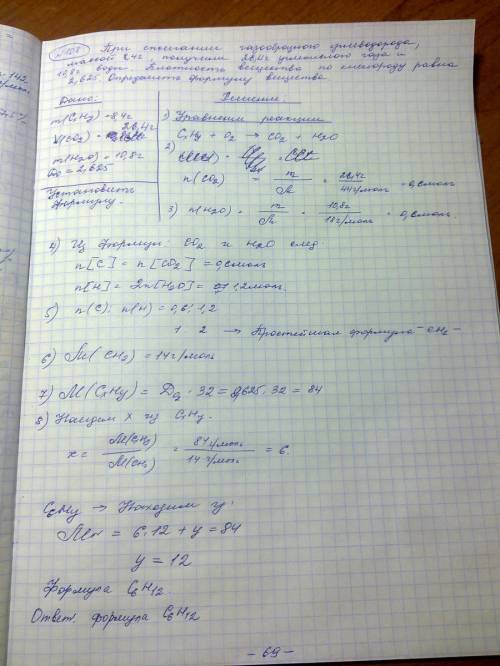 При сжигании газообразного углеводорода,
массой 8,4г получили 26,4г углекислого газа и
10,8г воды. Плотность вещества по кислороду равна
2,625. Определить формулу вещества
Дано:
m(CxHy) = 8,4г
(CO2) = 26,4г
m(H2O) = 10,8г
D = 2,625
Установить
формулу.
Решение:
1) Уравнение реакции
CxHy + O2 → CO2 + H2O
2)
n(CO2) = m/M = 26,4г/44г/моль = 0,6моль
3) n(H2O) = m/M = 10,8г/18г/моль = 0,6моль.
4) Из формулы: CO2 и H2O след.
n[C] = n[CO2] = 0,6моль
n[H] = 2n[H2O] = 1,2моль.
5) n(C) : n(H) = 0,6 : 1,2
1 2 → Простейшая формула - CH2 -
6) M(CH2) = 14г/моль
7) M(CxHy) = DO2 · 32 = 2,625 · 32 = 84
8) Находим x из CxHy.
x = = 84г/моль/14г/моль = 6.
C6Hy → Находим y:
= 6·12 + y = 84
y = 12
Формула C6H12
Ответ: формула C6H12
- 69 -